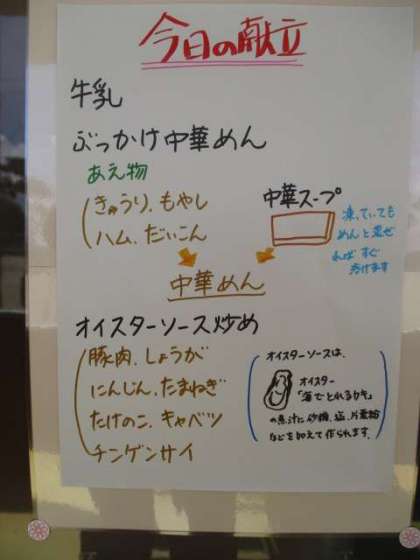 今日の献立
牛乳
ぶっかけ中華めん
あえ物
きゅうり、もやし
ハム、だいこん
中華スープ
凍っていても
めんと混ぜ
ればすぐ
溶けます
中華めん
オイスターソース炒め
豚肉、しょうが
にんじん、たまねぎ
たけのこ、キャベツ
チンゲンサイ
オイスターソースは、
オイスター
「海でとれるカキ」
の煮汁に砂糖、塩、片栗粉
などを加えて作られます。